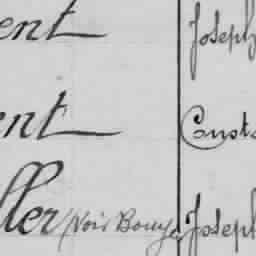 ent Joseph
ent Const
ller (Voir Bouy Joseph